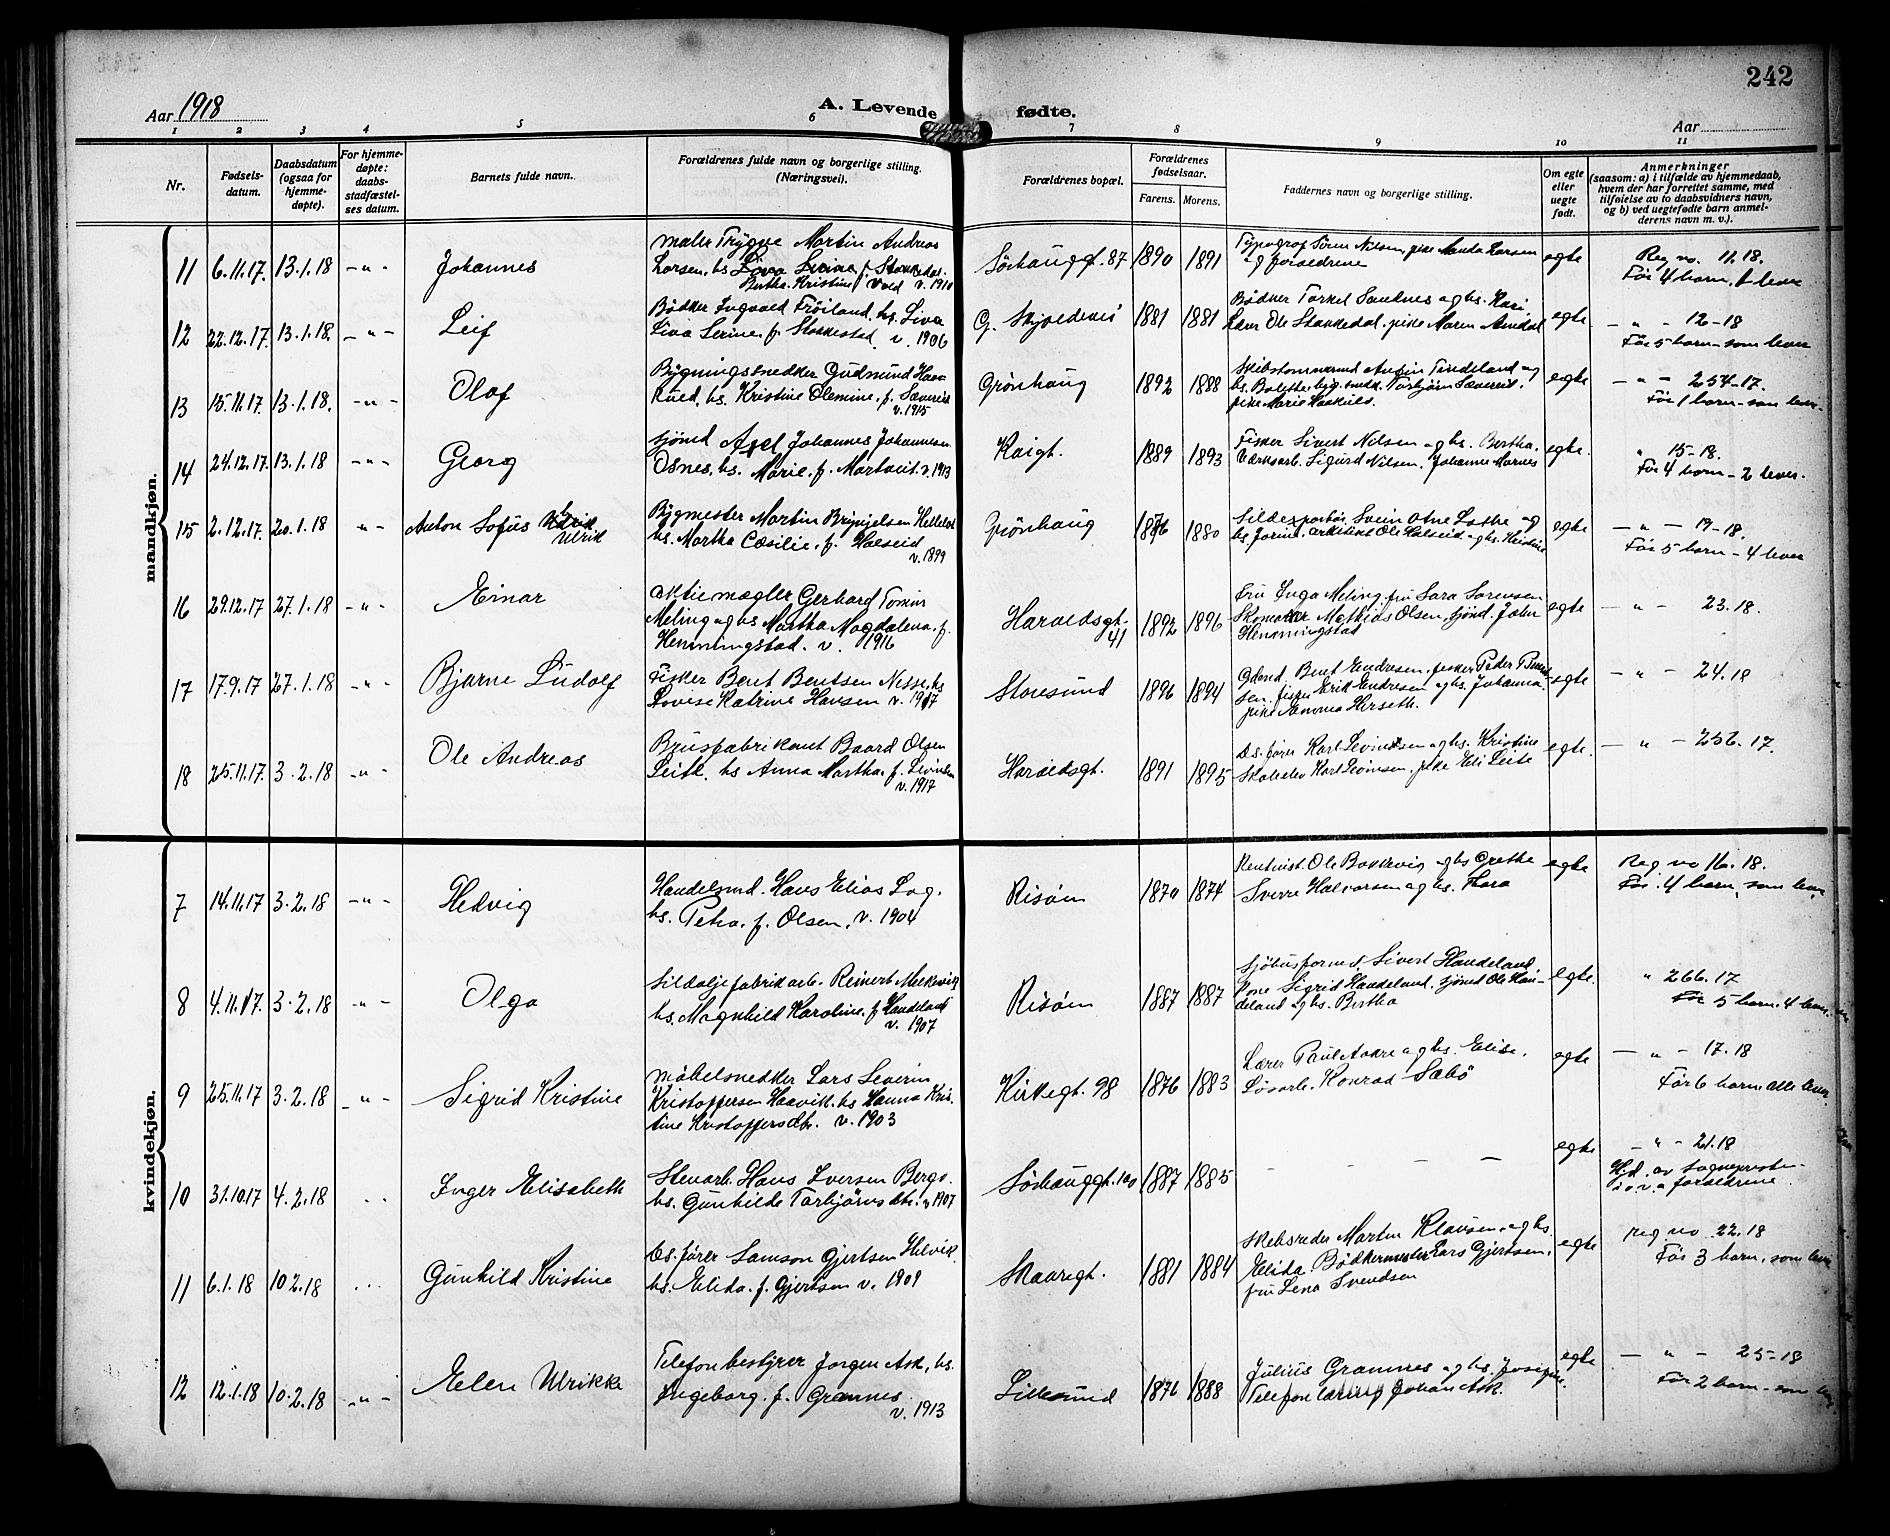 242
Aar 1918
A. Levende fødte.
Aar
1 2 3 4 5 6 7 8 9 10 11
Nr.
Fødsels-
datum.
Daabsdatum
(ogsaa for
hjemme-
døpte).
For hjemme-
døpte:
daabs-
stadfæstel-
ses datum.
Barnets fulde navn.
Forældrenes fulde navn og borgerlige stilling.
(Næringsvei).
Forældrenes bopæl.
Forældrenes
fødselsaar.
Farens. Morens.
Faddernes navn og borgerlige stilling.
Om egte
eller
uegte
født.
Anmerkninger
(saasom: a) i tilfælde av hjemmedaab,
hvem der har forrettet samme, med
tilføielse av to daabsvidners navn,
og b) ved uegtefødte barn anmel-
derens navn m. v.).
mandkjøn.
11 6.11.17. 13.1.18 -"- Johannes
maler Trygve Martin Andreas
Larsen, hs
Bertha Kristine v. 1910
Sörhauggt. 87 1890 1891
Typograf Sören Nilsen, pike Larsen
og foraeldrene
egte
Reg no. 11.18.
Før 4 barn, 1 lever
12 22.12.17. 13.1.18. -"- Leif
Bødker Ingvald Fröiland, hs. Liva
Sirine f. Stakkestad v. 1906
G. Skjoldevei 1881 1881
Bødker Torkel Sandnes og hs. Kari
Ole Stakkedal, pike Maren
egte
- " - 12-18
Før 5 barn - som lever
13 15.11.17. 13.1.18. -"- Olaf
Bygningssnedker Gudmund Haa-
kull, hs. Kristine Olemine f. Sæverud
v. 1915
Grönhaug 1892 1888
Skibstømmermd Tindeland og
hs. Bolette, byg. snedk. Torbjørn Sæverud,
pike Marie Haakull.
egte
- " - 254-17.
Før 1 barn - som lever.
14 24.12.17. 13.1.18 -"- Georg
Sjömd Axel Johannes Johannesen
Osnes, hs. Marie f. v. 1913
Kaigt. 1889 1893
Fisker Sivert Nilsen og hs. Bertha,
Værksarb. Sigurd Nilsen, Johanne
egte.
" 15-18.
Før 4 barn - 2 lever.
15 2.12.17. 20.1.18 "- Anton Sofus Ulrik
Bygmester Martin Brynjelsen
hs. Martha Cæsilie, f. Halseid
v. 1899
Grönhaug 1876 1880
Sildexportör Svein Lothe og
hs Jorine, arkitekt Ole Halseid og hs. Kristine
egte
- " - 19-18.
Før 5 barn - 4 lever
16 29.12.17 27.1.18 -"- Einar
aktiemægler Gerhard
Meling og hs Martha Magdalena, f.
Henningstad. v. 1916
Haraldsgt.
41 1892 1896
Fru Inga Meling, fru Sara Sørensen
Skomaker Mathias Olsen, sjömd. John
Henningstad
egte
- " - 23.18.
17 17.9.17 27.1.18 -"- Bjarne Ludolf
Fisker Bent Bentsen Nesse, hs
Lovise Katrine Hansen v. 1917
Storesund 1896 1894
Bent Endresen, fisker Peder
sen, fisker Erik Endresen og hs. Johanna,
pike Emma Herseth.
egte
- " - 24.18
18 25.11.17. 3.2.18 -"- Ole Andreas
Brusfabrikant Baard Olsen
Leite, hs Anna Martha f. Levinsen
v. 1917
Haraldsgt. 1891 1895
Ds. fører Karl Levinsen og hs. Kristine
Skoleelev Karl Levinsen, pike Eli Leite
egte.
- " - 256.17.
kvindekjøn.
7 14.11.17 3.2.18 -"- Hedvig
Handelsmd. Hans Elias Lag.
hs. Petra, f. Olsen, v. 1904
Risöen 1870 1874
Ole Bakkevig og hs Grethe
Sverre Halvorsen og hs. Thora
egte
Reg no 16.18.
Før 4 barn, som lever
8 4.11.17. 3.2.18 -"- Olga
Sildoljefabrikarb. Reinert Melkevik
hs. Magnhild Karoline, f Handeland
v. 1907
Risöen 1887 1887
Sjöhusformd. Sivert Handeland,
kone Sigrid Handeland, sjömd Ole Han-
deland og hs. Bertha
egte.
" 266.17
Før 5 barn. 4 lever
9 25.11.17 3.2.18 -"- Sigrid Kristine
Möbelsnedker Lars Severin
Kristoffersen Haavik. hs Hanna Kris-
tine Kristoffersdtr. v. 1903
Kirkegt. 98 1876 1883
Lærer Paul Aakre og hs. Elise.
Løsarb. Konrad Sæbö
egte
- " - 17.18
Før 6 barn alle lever.
10 31.10.17 4.2.18 Inger Elisabeth
Stenarb. Hans Iversen Berge.
hs. Gunhilde Torbjörnsdtr. v 1907
Sörhauggt. 100 1887 1885
- - - -
egte
- " - 21.18
Hjd. av Sogneprest
foraeldrene
11 6.1.18 10.2.18 Gunhild Kristine
Ds. fører Samson Gjertsen Helvik,
hs. Elida. f. Gjertsen v. 1909
Skaaregt. 1881 1884
Skibsreder Martin Klausen og hs.
Elida. Bødkermester Lars Gjertsen,
fru Lena Svendsen
egte
reg no 22.18
Før 3 barn, som lever
12 12.1.18 10.2.18 -"- Elen Ulrikke
Telefonbestyrer Jörgen Ask, hs.
Ingeborg. f. Grannes
v. 1913
Lillesund 1876 1888
Julius Grannes og hs. Josefine.
Telefon Johan Ask.
egte
- " - 25-18
Før 2 barn - som lever.